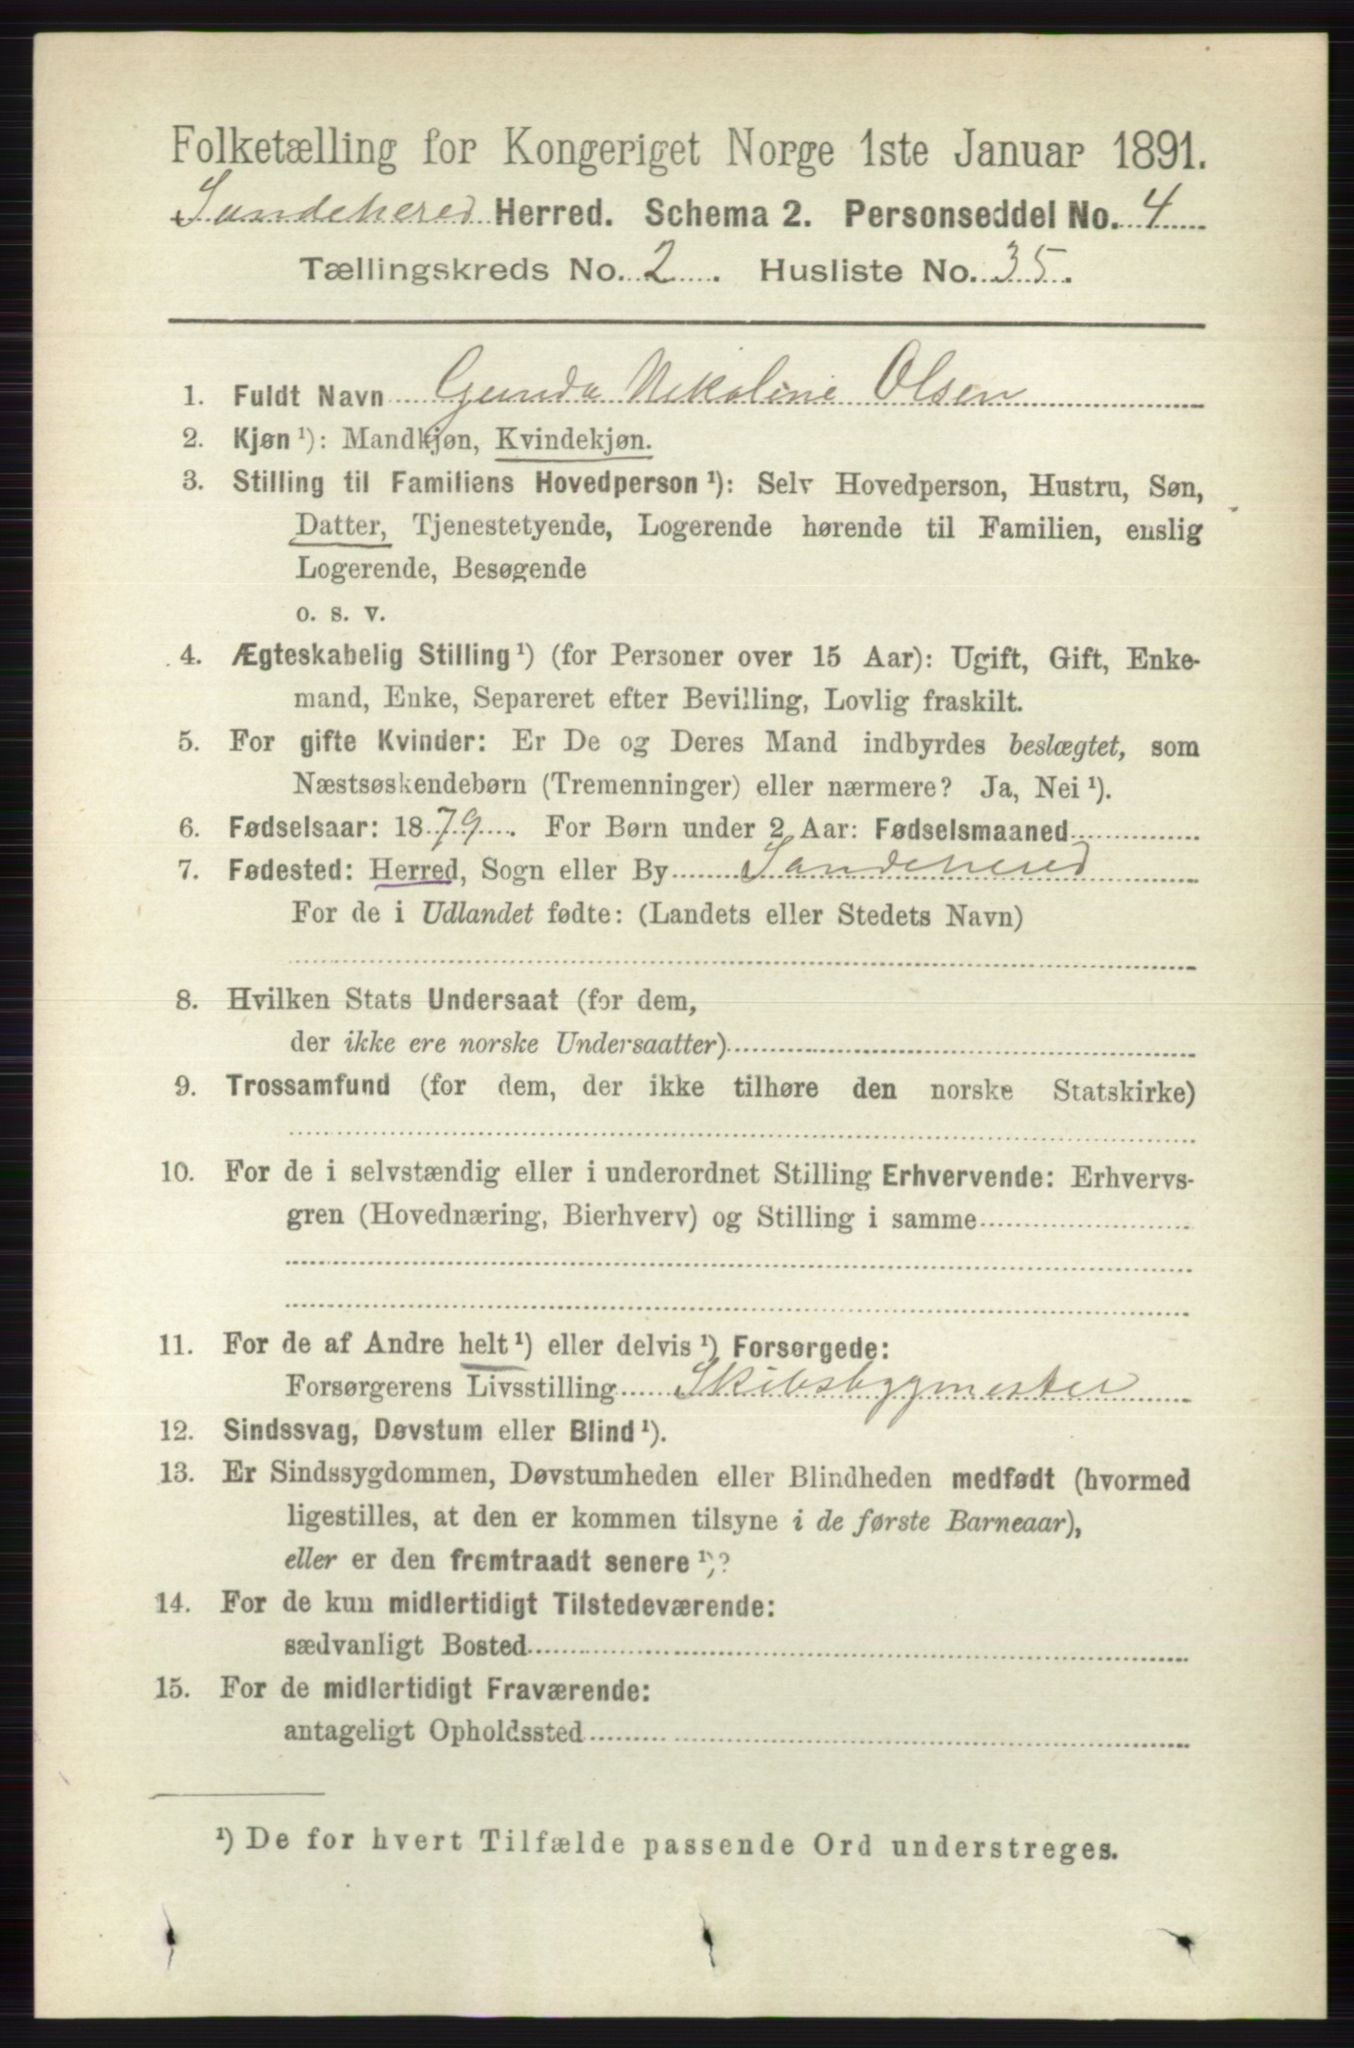 Folketælling for Kongeriget Norge 1ste Januar 1891.
Sandeherred Herred. Schema 2. Personseddel No. 4
Tællingskreds No. 2. Husliste No. 35.
1. Fuldt Navn Gunda Nikoline Olsen
2. Kjøn ¹): Mandkjøn, Kvindekjøn.
3. Stilling til Familiens Hovedperson ¹): Selv Hovedperson, Hustru, Søn,
Datter, Tjenestetyende, Logerende hørende til Familien, enslig
Logerende, Besøgende
o. s. v.
4. Ægteskabelig Stilling ¹) (for Personer over 15 Aar): Ugift, Gift, Enke-
mand, Enke, Separeret efter Bevilling, Lovlig fraskilt.
5. For gifte Kvinder: Er De og Deres Mand indbyrdes beslægtet, som
Næstsøskendebørn (Tremenninger) eller nærmere? Ja, Nei ¹).
6. Fødselsaar: 1879. For Børn under 2 Aar: Fødselsmaaned
7. Fødested: Herred, Sogn eller By Sandeherred
For de i Udlandet fødte: (Landets eller Stedets Navn)
8. Hvilken Stats Undersaat (for dem,
der ikke ere norske Undersaatter)
9. Trossamfund (for dem, der ikke tilhøre den norske Statskirke)
10. For de i selvstændig eller i underordnet Stilling Erhvervende: Erhvervs-
gren (Hovednæring, Bierhverv) og Stilling i samme
11. For de af Andre helt ¹) eller delvis ¹) Forsørgede:
Forsørgerens Livsstilling Skibsbygmester
12. Sindssvag, Døvstum eller Blind ¹).
13. Er Sindssygdommen, Døvstumheden eller Blindheden medfødt (hvormed
ligestilles, at den er kommen tilsyne i de første Barneaar),
eller er den fremtraadt senere ¹)?
14. For de kun midlertidigt Tilstedeværende:
sædvanligt Bosted
15. For de midlertidigt Fraværende:
antageligt Opholdssted
¹) De for hvert Tilfælde passende Ord understreges.